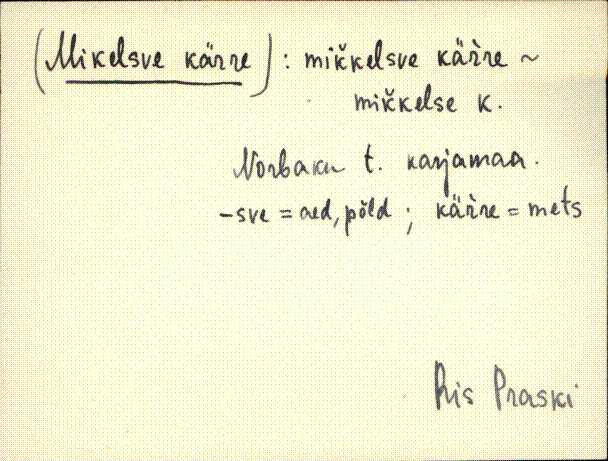 (Mikelsve kärre) : mik̆kelsve kär̀re ~
mik̆kelse k.
Norbaku t. karjamaa.
-sve = aed, põld ; kär̀re = mets
Ris Praski